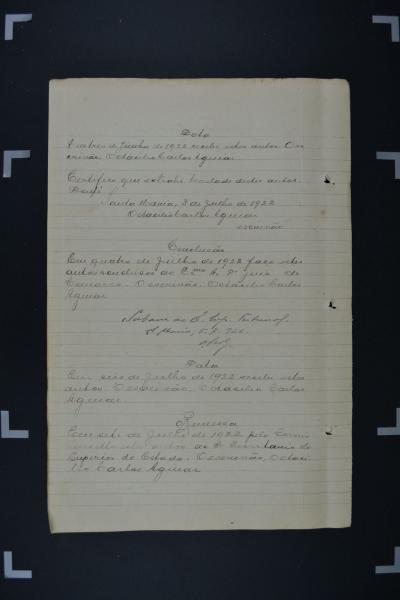 Data
A tres de Junho de 1922 recebi estes autos. O es-
crivão, Octacilio Carlos Aguiar
Certifico que extrahi traslado destes autos.
Dou fé.
Santa Maria, 3 de Julho de 1922
Octacilio Carlos Aguiar
escrivão
Conclusão
Em quatro de Julho de 1922 faço estes
autos conclusos ao Exmo Sr. Dr. Juiz de
Comarca. O escrivão, Octacilio Carlos
Aguiar
ao E. Sup. Tribunal.
S. Maria,
Data
Em seis de Julho de 1922 recebi estes
autos. O escrivão, Octacilio Carlos
Aguiar.
Remessa
Em sete de Julho de 1922 pelo Correio
autos ao Dr. Secretario do
Superior do Estado. O escrivão, Octaci-
lio Carlos Aguiar